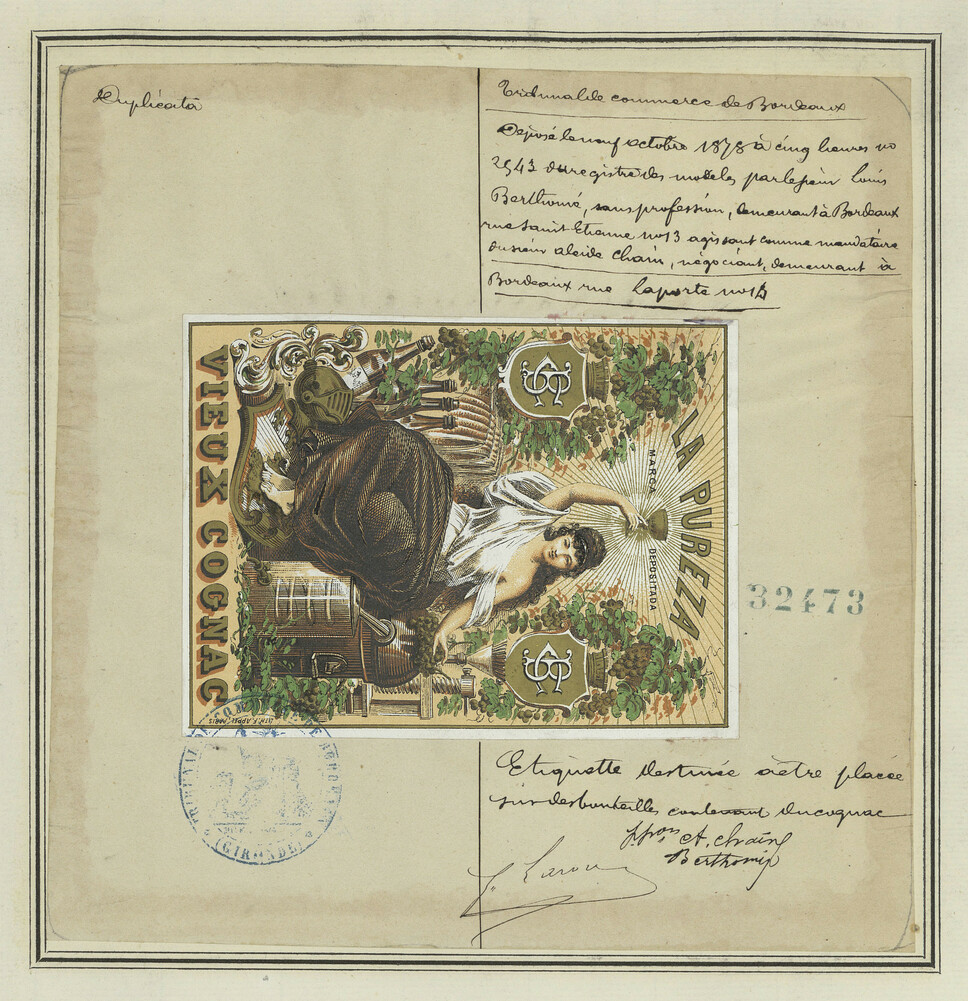 Duplicata
Tribunal de commerce de Bordeaux
Déposé le neuf octobre 1878 à cinq heures no
2543 du registre des modeles par le sieur Louis
Berthomié, sans profession, demeurant à Bordeaux
rue Saint Etienne no 13 agissant comme mandataire
du sieur alcide Chain, négociant, demeurant à
Bordeaux rue Laporte no 14
LA PUREZZA
MARCA DEPOSITADA
VIEUX COGNAC
LITH. F. APPEL, PARIS
32473
TRIBUNAL DE COMMERCE DE BORDEAUX
(GIRONDE)
Etiquette destinée à être placée
sur des bouteilles contenant du cognac
ppon A. Chain